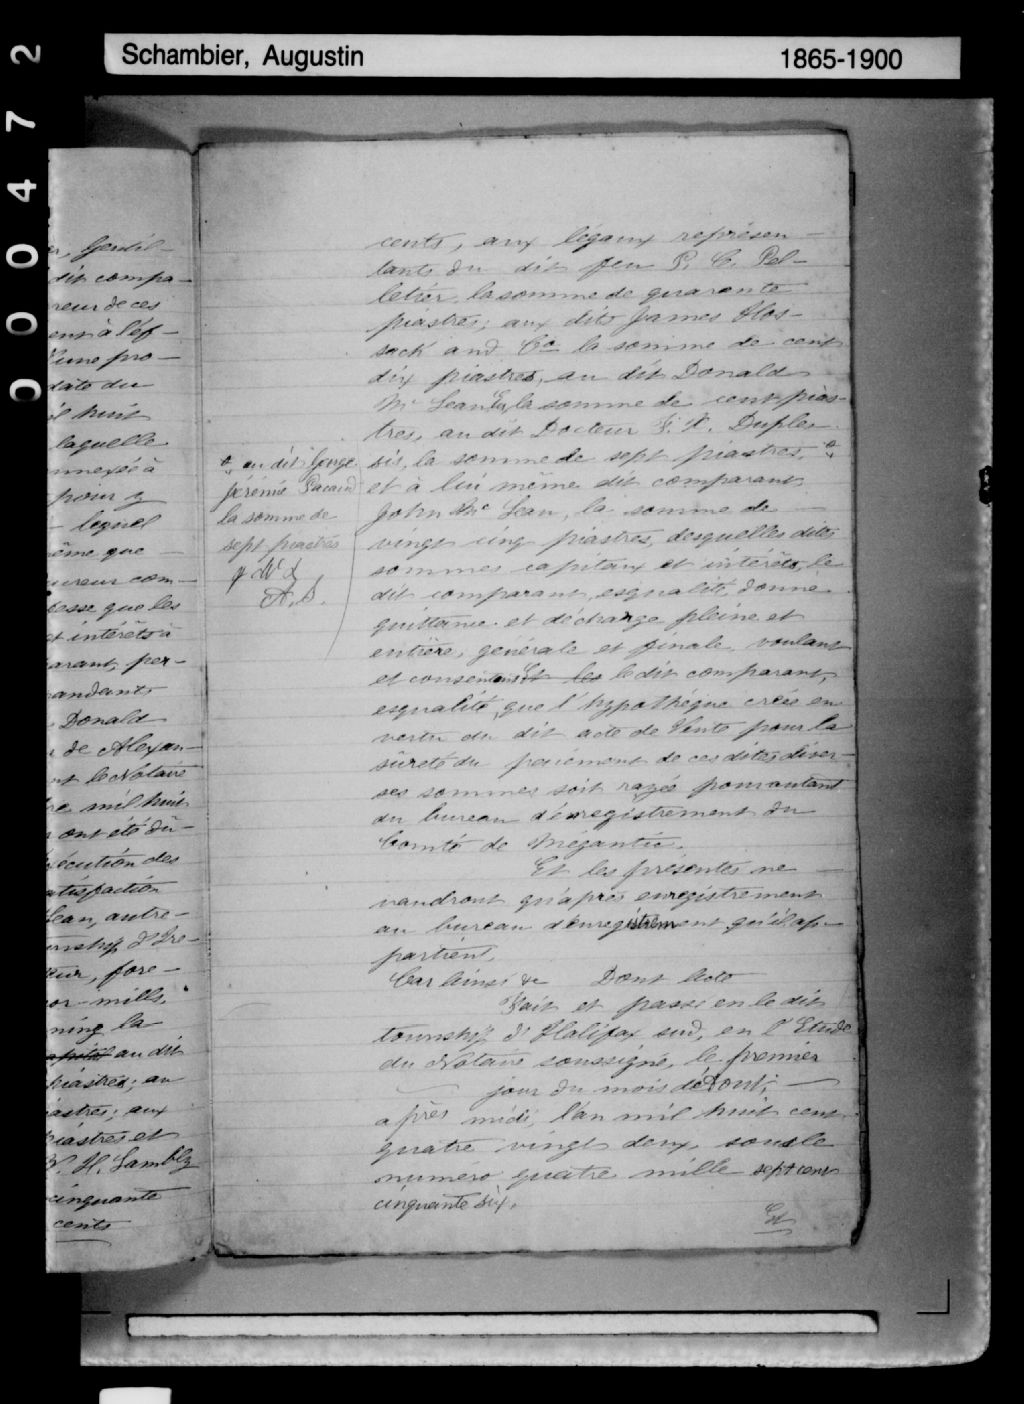 Schambier, Augustin
1865-1900
000472
er, Gentil-
dit compa-
reur de ces
ent à l'ef-
d'une pro-
date du
il huit
laquelle
nnexée à
pour y
lequel
ême que
ureur com-
esse que les
et intérêts à
arant, per-
andant
Donald
de Alexan-
nt le Notaire
re mil huit
ont été dû-
écution des
atisfaction
Lean, autre-
ownship d'Ire-
eur, fore-
or-mills.
ning la
au dit
piastres; au
iastres; aux
piastres et
W. H. Lambly
cinquante
cents
cents, aux légaux représen-
tants du dit feu P. C. Pel-
letier, la somme de quarante
piastres; aux dits James Hos-
sack and Co la somme de cent
dix piastres, au dit Donald
Mc Lean Esq. la somme de cent pias-
tres, au dit Docteur F. X. Duples-
sis, la somme de sept piastres,
et à lui même dit comparant
John Mc Lean, la somme de
vingt cinq piastres, desquelles dites
sommes capitaux et intérêts, le
dit comparant, esqualité, donne
quittance et décharge pleine et
entière, générale et finale, voulant
et consentant et les le dit comparant,
esqualité, que l'hypothèque créée en
vertu du dit acte de Vente pour la
sûreté du paiement de ces dites diver-
ses sommes soit rayée pour autant
du bureau d'enregistrement du
Comté de Mégantic.
Et les présentes ne
vaudront qu'après enregistrement
au bureau d'enregistrement qu'il ap-
partient.
Car ainsi &c Dont Acte
Fait et passé en le dit
township d'Halifax sud, en l'Etude
du Notaire soussigné, le premier
jour du mois d'Août,
après midi, l'an mil huit cent
quatre vingt deux, sous le
numéro quatre mille sept cent
cinquante six.
Et
au dit George
Jérémie Pacaud
la somme de
sept piastres
A. S.